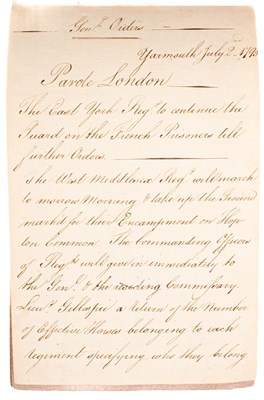 Genl. Orders
Yarmouth July 2nd 1795
Parole London
The East York Regt. to continue the
Guard on the French Prisoners till
further Orders.
The West Middlesex Regt. will march
to morrow Morning & take up the Ground
markd for their Encampment on Hop
ton Common. The Commanding Officers
of Regts. will give in immediately to
the Genl. & the residing Commissary
Lieut. Gillespie a Return of the Number
of Effective Horses belonging to each
Regiment specifying who they belong